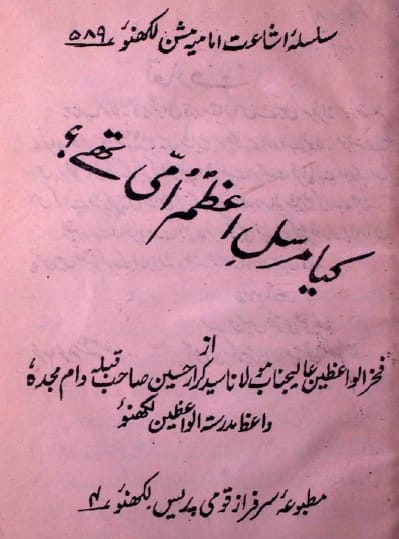 سلسلۂ اشاعت امامیہ مشن لکھنؤ ۵۸۹
کیا مرسلِ اعظمؐ اُمّی تھے؟
از
فخر الواعظین عالیجناب مولانا سید کرار حسین صاحب قبلہ دام مجدہٗ
واعظ مدرسۃ الواعظین لکھنؤ
مطبوعہ سرفراز قومی پریس لکھنؤ